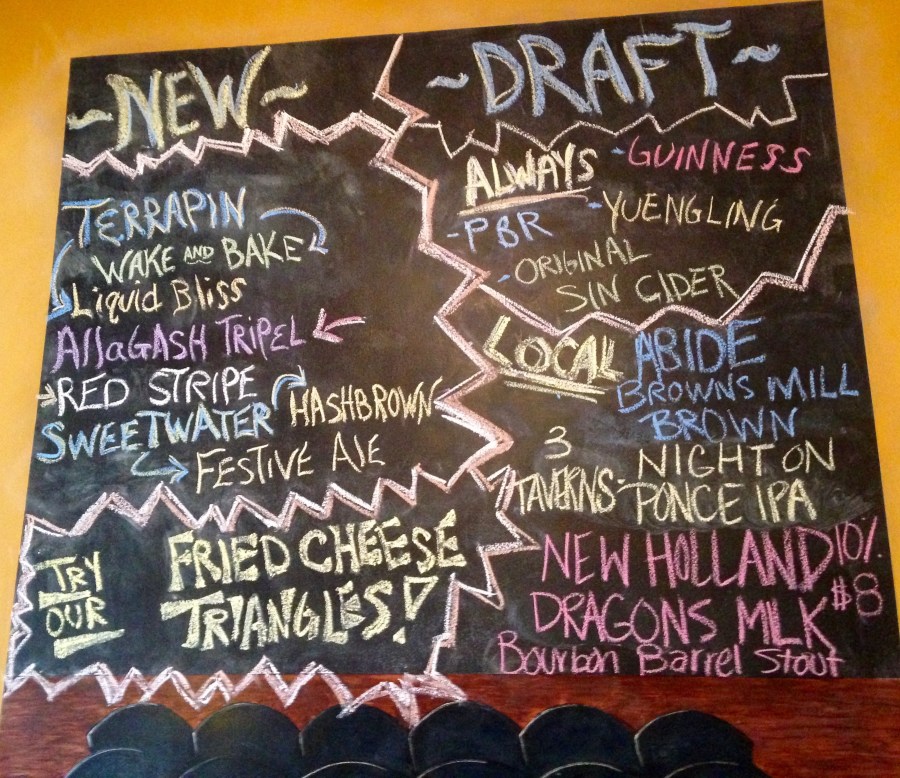 ~NEW~
TERRAPIN
WAKE AND BAKE
Liquid Bliss
AllaGASH TRiPEL
RED STRIPE
SWEETWATER HASHBROWN
FESTIVE AlE
TRY
OUR
FRIED CHEESE
TRIANGLES!
~DRAFT~
ALWAYS -GUINNESS
-PBR -YUENGLING
-ORIGINAL
SIN CIDER
LOCAL ABIDE
BROWNS MILL
BROWN
3
TAVERNS- NIGHT ON
PONCE IPA
NEW HOLLAND 10%
DRAGONS MILK $8
Bourbon Barrel Stout